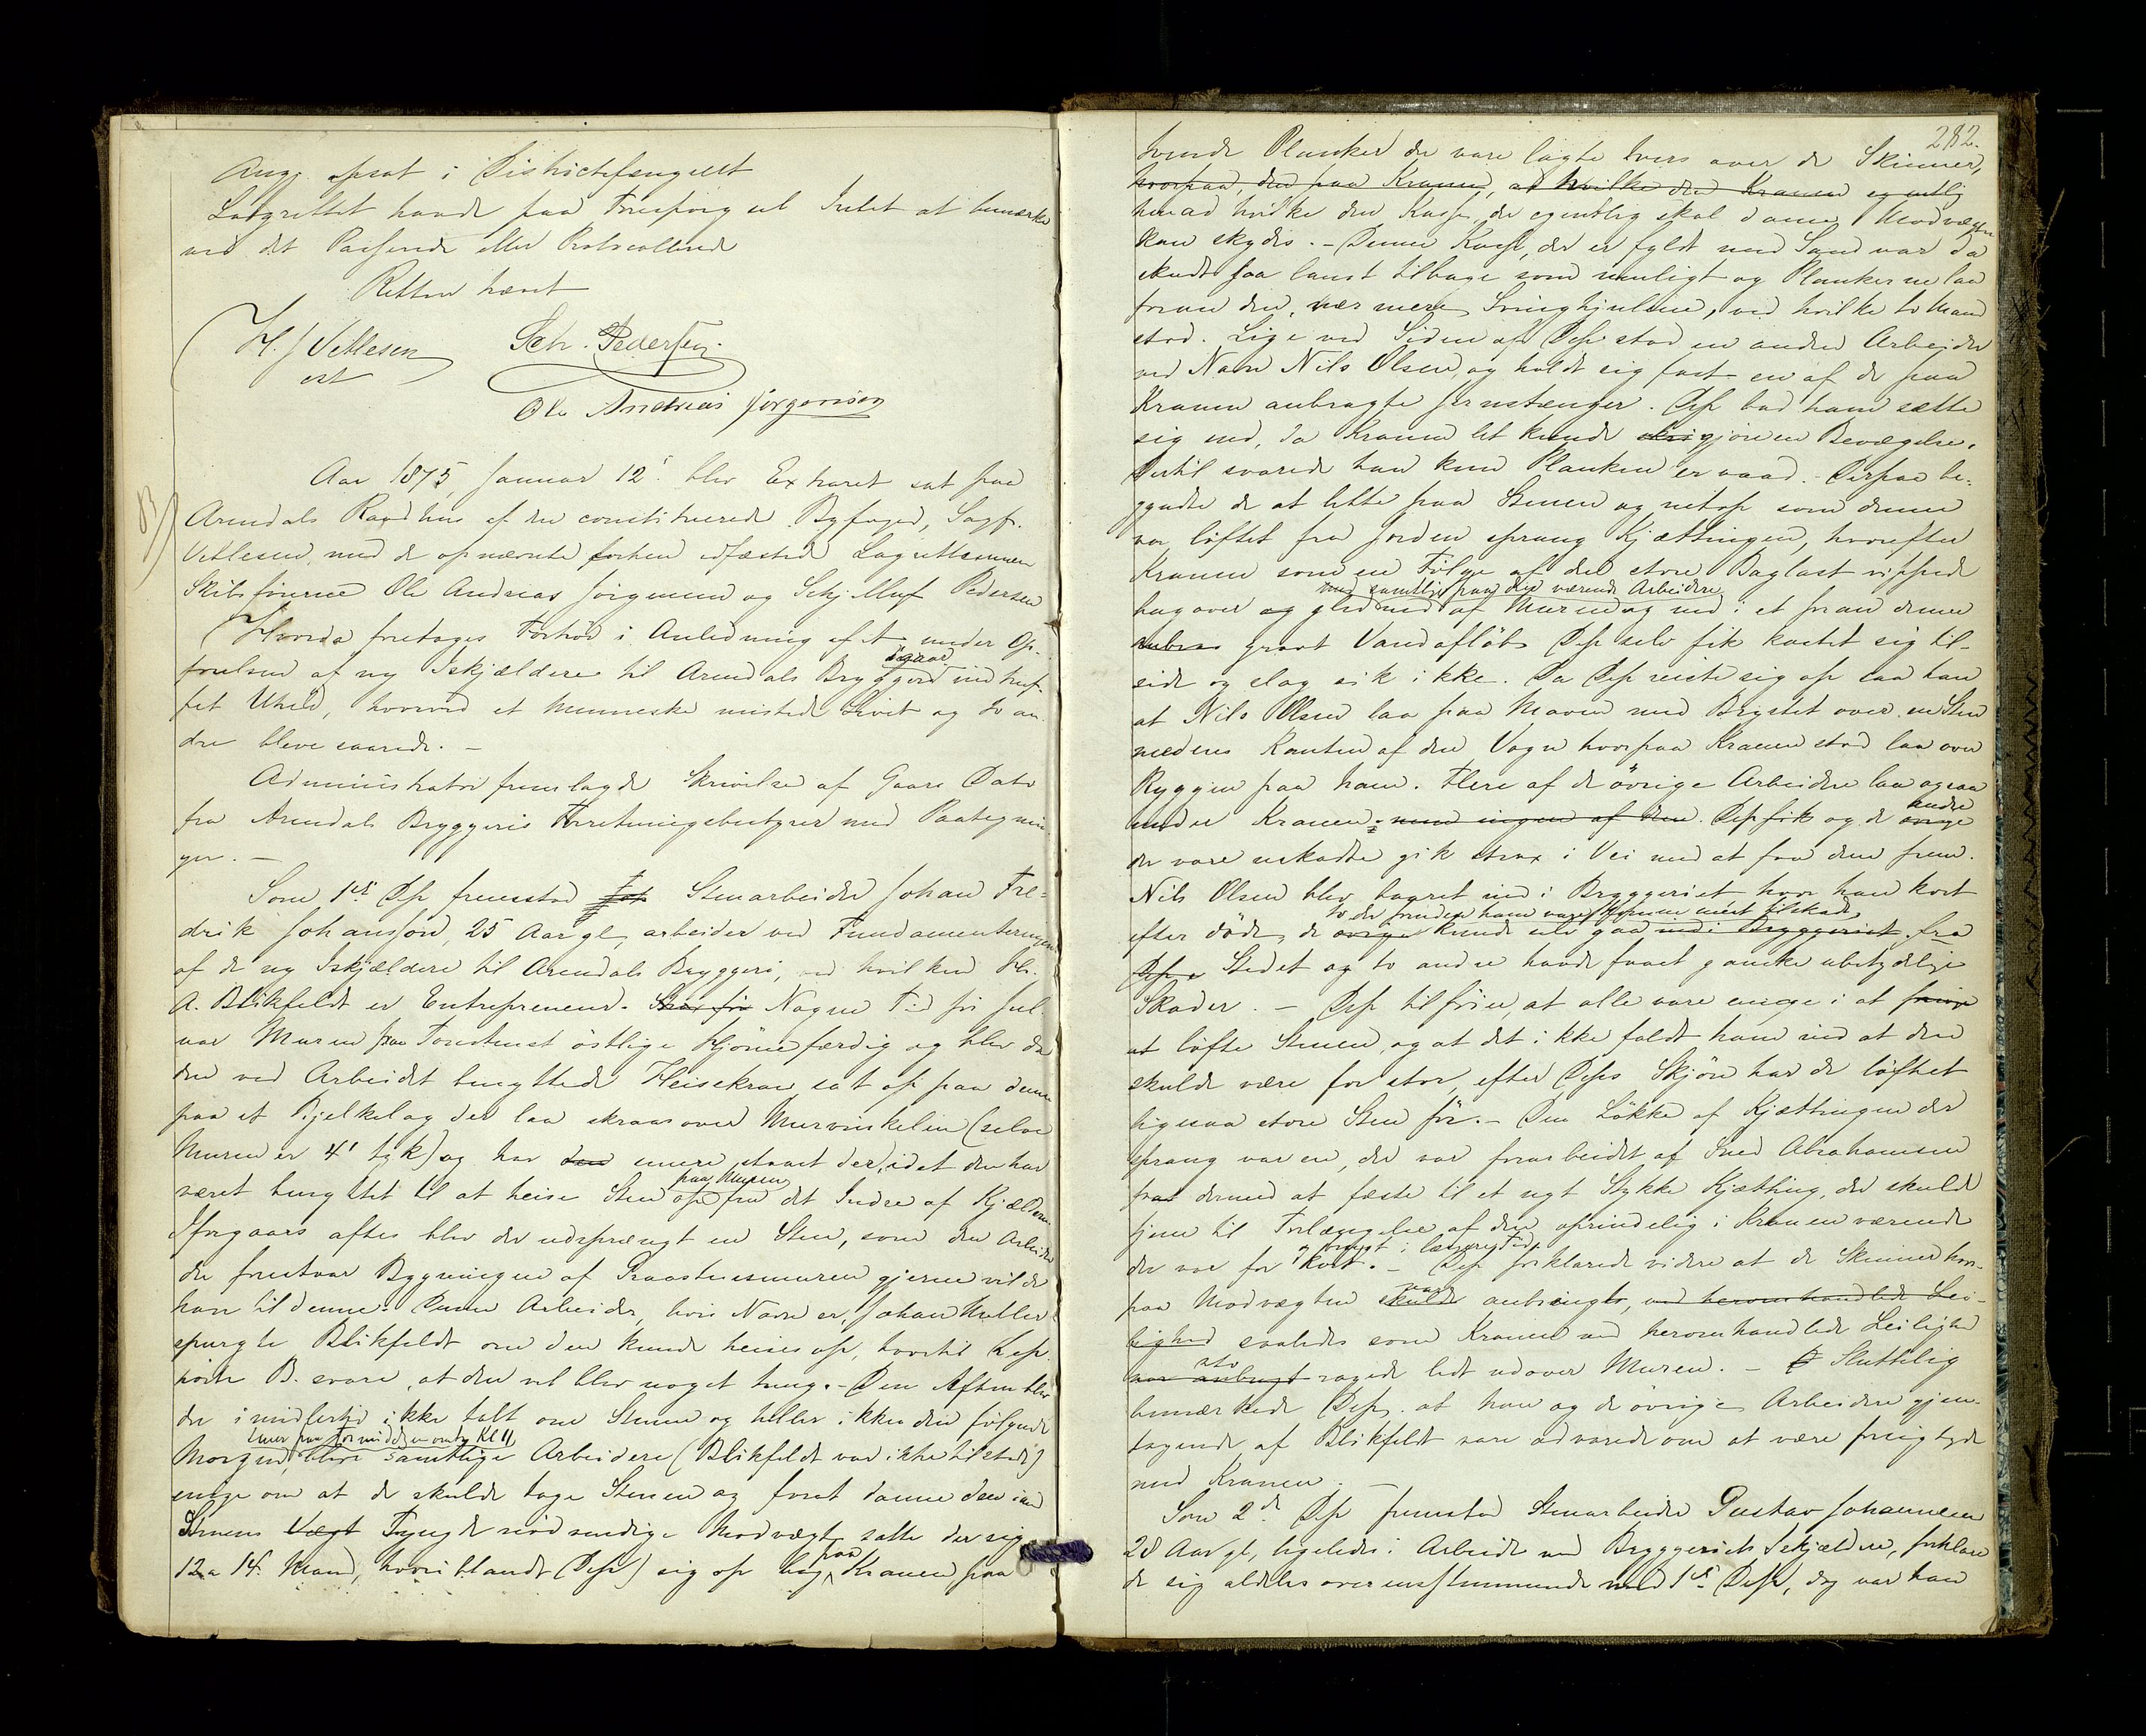 Ang. opsat i Districtsfængslet
Lagrettet havde paa Forespörgsel Intet at bemærke
ved det Passerede eller Protocollerede
Retten hævet
H. J Vetlesen Sch. Pedersen
cst
Ole Andreas Jörgensen
83)
Aar 1875, Januar 12t blev Extraret sat paa
Arendals Raadhus af den constituerede Byfoged, Sagf.
Vetlesen, med de opnævnte forhen edfæstede Lagrettemænd
Skibsförerne Ole Andreas Jörgensen og Schjelluf Pedersen
Hvorda foretoges Forhör i Anledning af et under Op-
förelsen af ny Iskjældere til Arendals Bryggeri igaar indtruf-
fet Uheld, hvorved et Menneske mistede Livet og to an-
dre bleve saarede. –
Administrator fremlagde Skrivelse af Gaars Dato
fra Arendals Bryggeris Forretningsbestyrer med Paategnin-
ger. –
Som 1ste Dep fremstod Stenarbeider Johan Fre-
drik Johansson, 25 Aar gl, arbeider ved Fundamenteringen
af de ny Iskjældere til Arendals Bryggeri, ved hvilken Hr.
A. Blikfeldt er Entrepreneur. Strax för Nogen Tid för Jul
var Muren paa Tomtens östlige Hjörne færdig og blev da
den ved Arbeidet benyttede Heisekran sat op paa denne
paa et Bjelkelag der laa skraas over Murvinkelen (selve
Muren er 4' tyk) og har den senere staaet der, idet den har
været benyttet til at heise Sten op paa Muren fra det Indre af Kjælderen
Iforgaars aftes blev der udsprængt en Sten, som den Arbeider
der forestaar Bygningen af Graastensmuren gjerne vilde
have til denne. Denne Arbeider, hvis Navn er Johan Møller
spurgte Blikfeldt om den kunde heises op, hvortil Dep.
hörte B. svare, at den vel blev noget tung. – Den Aften blev
der imidlertid ikke talt om Stenen og heller ikke den fölgende
Morgen, men paa Formiddagen omtr Kl 11 bleve samtlige Arbeidere (Blikfeldt var ikke tilstede)
enige om at de skulde tage Stenen og forat danne den imod
Stenens Vægt Tyngde nödvendige Modvægt satte der sig
12 a 14 Mand, hvoriblandt Dep) sig op bag paa Kranen paa
282.
tvende Planker der vare lagte tvers over de Skinner,
hvorpaa, den paa Kranen, ad hvilke den Kranen egentlig
henad hvilke den Kasse, der egentlig skal danne Modvægten
kan skydes. – Denne Kasse, der er fyldt med Sand var da
skudt saa langt tilbage som muligt og Plankerne laa
foran den, nærmere Svinghjulene, ved hvilke to Mand
stod. Lige ved Siden af Dep stod en anden Arbeider
ved Navn Nils Olsen, og holdt sig fast en af de paa
Kranen anbragte Jernstænger. Dep bad ham sætte
sig ned, da Kranen let kunde gjöre en Bevægelse.
Dertil svarede han kun Planken er vaad. – Derpaa be-
gyndte de at lette paa Stenen og netop som denne
var löftet fra Jorden sprang Kjættingen, hvorefter
Kranen som en Fölge af den store Baglast vippede
bagover og gled ned med samtlige paa den værende Arbeidere af Muren og ned i et foran denne
gravt Vandaflöb. Dep selv fik kastet sig til-
side og slog sik ikke. Da Dep reiste sig op saa han
at Nils Olsen laa paa Maven med Brystet over en Sten
medens Kanten af den Vogn hvorpaa Kranen stod laa over
Ryggen paa ham. Flere af de övrige Arbeidere laa ogsaa
under Kranen, men ingen af dem. Dep fik og de övrige andre
der vare uskadte gik strax i Vei med at faa dem frem.
Nils Olsen blev baaret ind i Bryggeriet hvor han kort
efter döde, de övrige to der foruden ham vare komne mest tilskade kunde selv gaa ind i Bryggeriet fra
Stedet og to andre havde faaet ganske ubetydelige
Skader. – Dep tilföier, at alle vare enige i at
at löfte Stenen, og at det ikke faldt ham ind at den
skulde være for stor, efter Deps Skjön har de löftet
ligesaa store Sten för. – Den Løkke af Kjættingen der
sprang var en, der var forarbeidet af Smed Abrahamsen
for dermed at fæste til et nyt Stykke Kjætting, der skulde
tjene til Forlængelse af den oprindelig i Kranen værende
der var for kort. – og brugt i længere Tid Dep forklarede videre at de Skinner hvor-
paa Modvægten skulde var anbragt, ved herommhandlede Lei-
lighed saaledes som Kranen ved heromhandlede Leilighed
var anbragt stod ragede lidt udover Muren. – Sluttelig
bemærkede Dep. at han og de övrige Arbeidere gjen-
tagende af Blikfeldt vare advarede om at være forsigtige
med Kranen. –
Som 2d Dep fremstod Stenarbeider Gustav Johannesen
28 Aar gl, ligeledes i Arbeide ved Bryggeriets Iskjældere, forklare-
de sig aldeles overensstemmende med 1ste Dep, dog var han